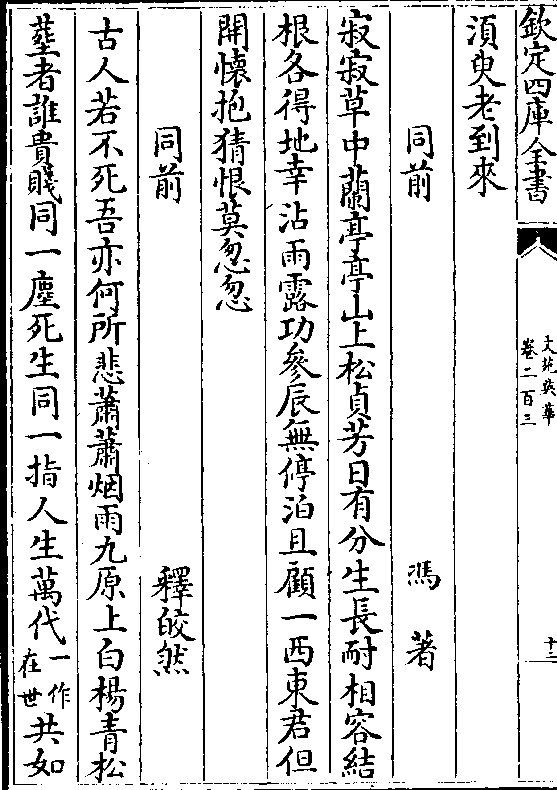 欽定四庫全書
文苑英華
卷二百三
十二
須臾老到來
同前 馮著
寂寂草中蘭亭亭山上松貞芳日有分生長耐相容結
根各得地幸沾雨露功參辰無停泊且顧一西東君但
開懷抱猜恨莫怱怱
同前 釋皎然
古人若不死吾亦何所悲蕭蕭烟雨九原上白楊青松
塟者誰貴賤同一塵死生同一指人生萬代一作在世共如